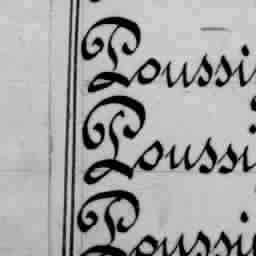 Poussi
Poussi
Poussi